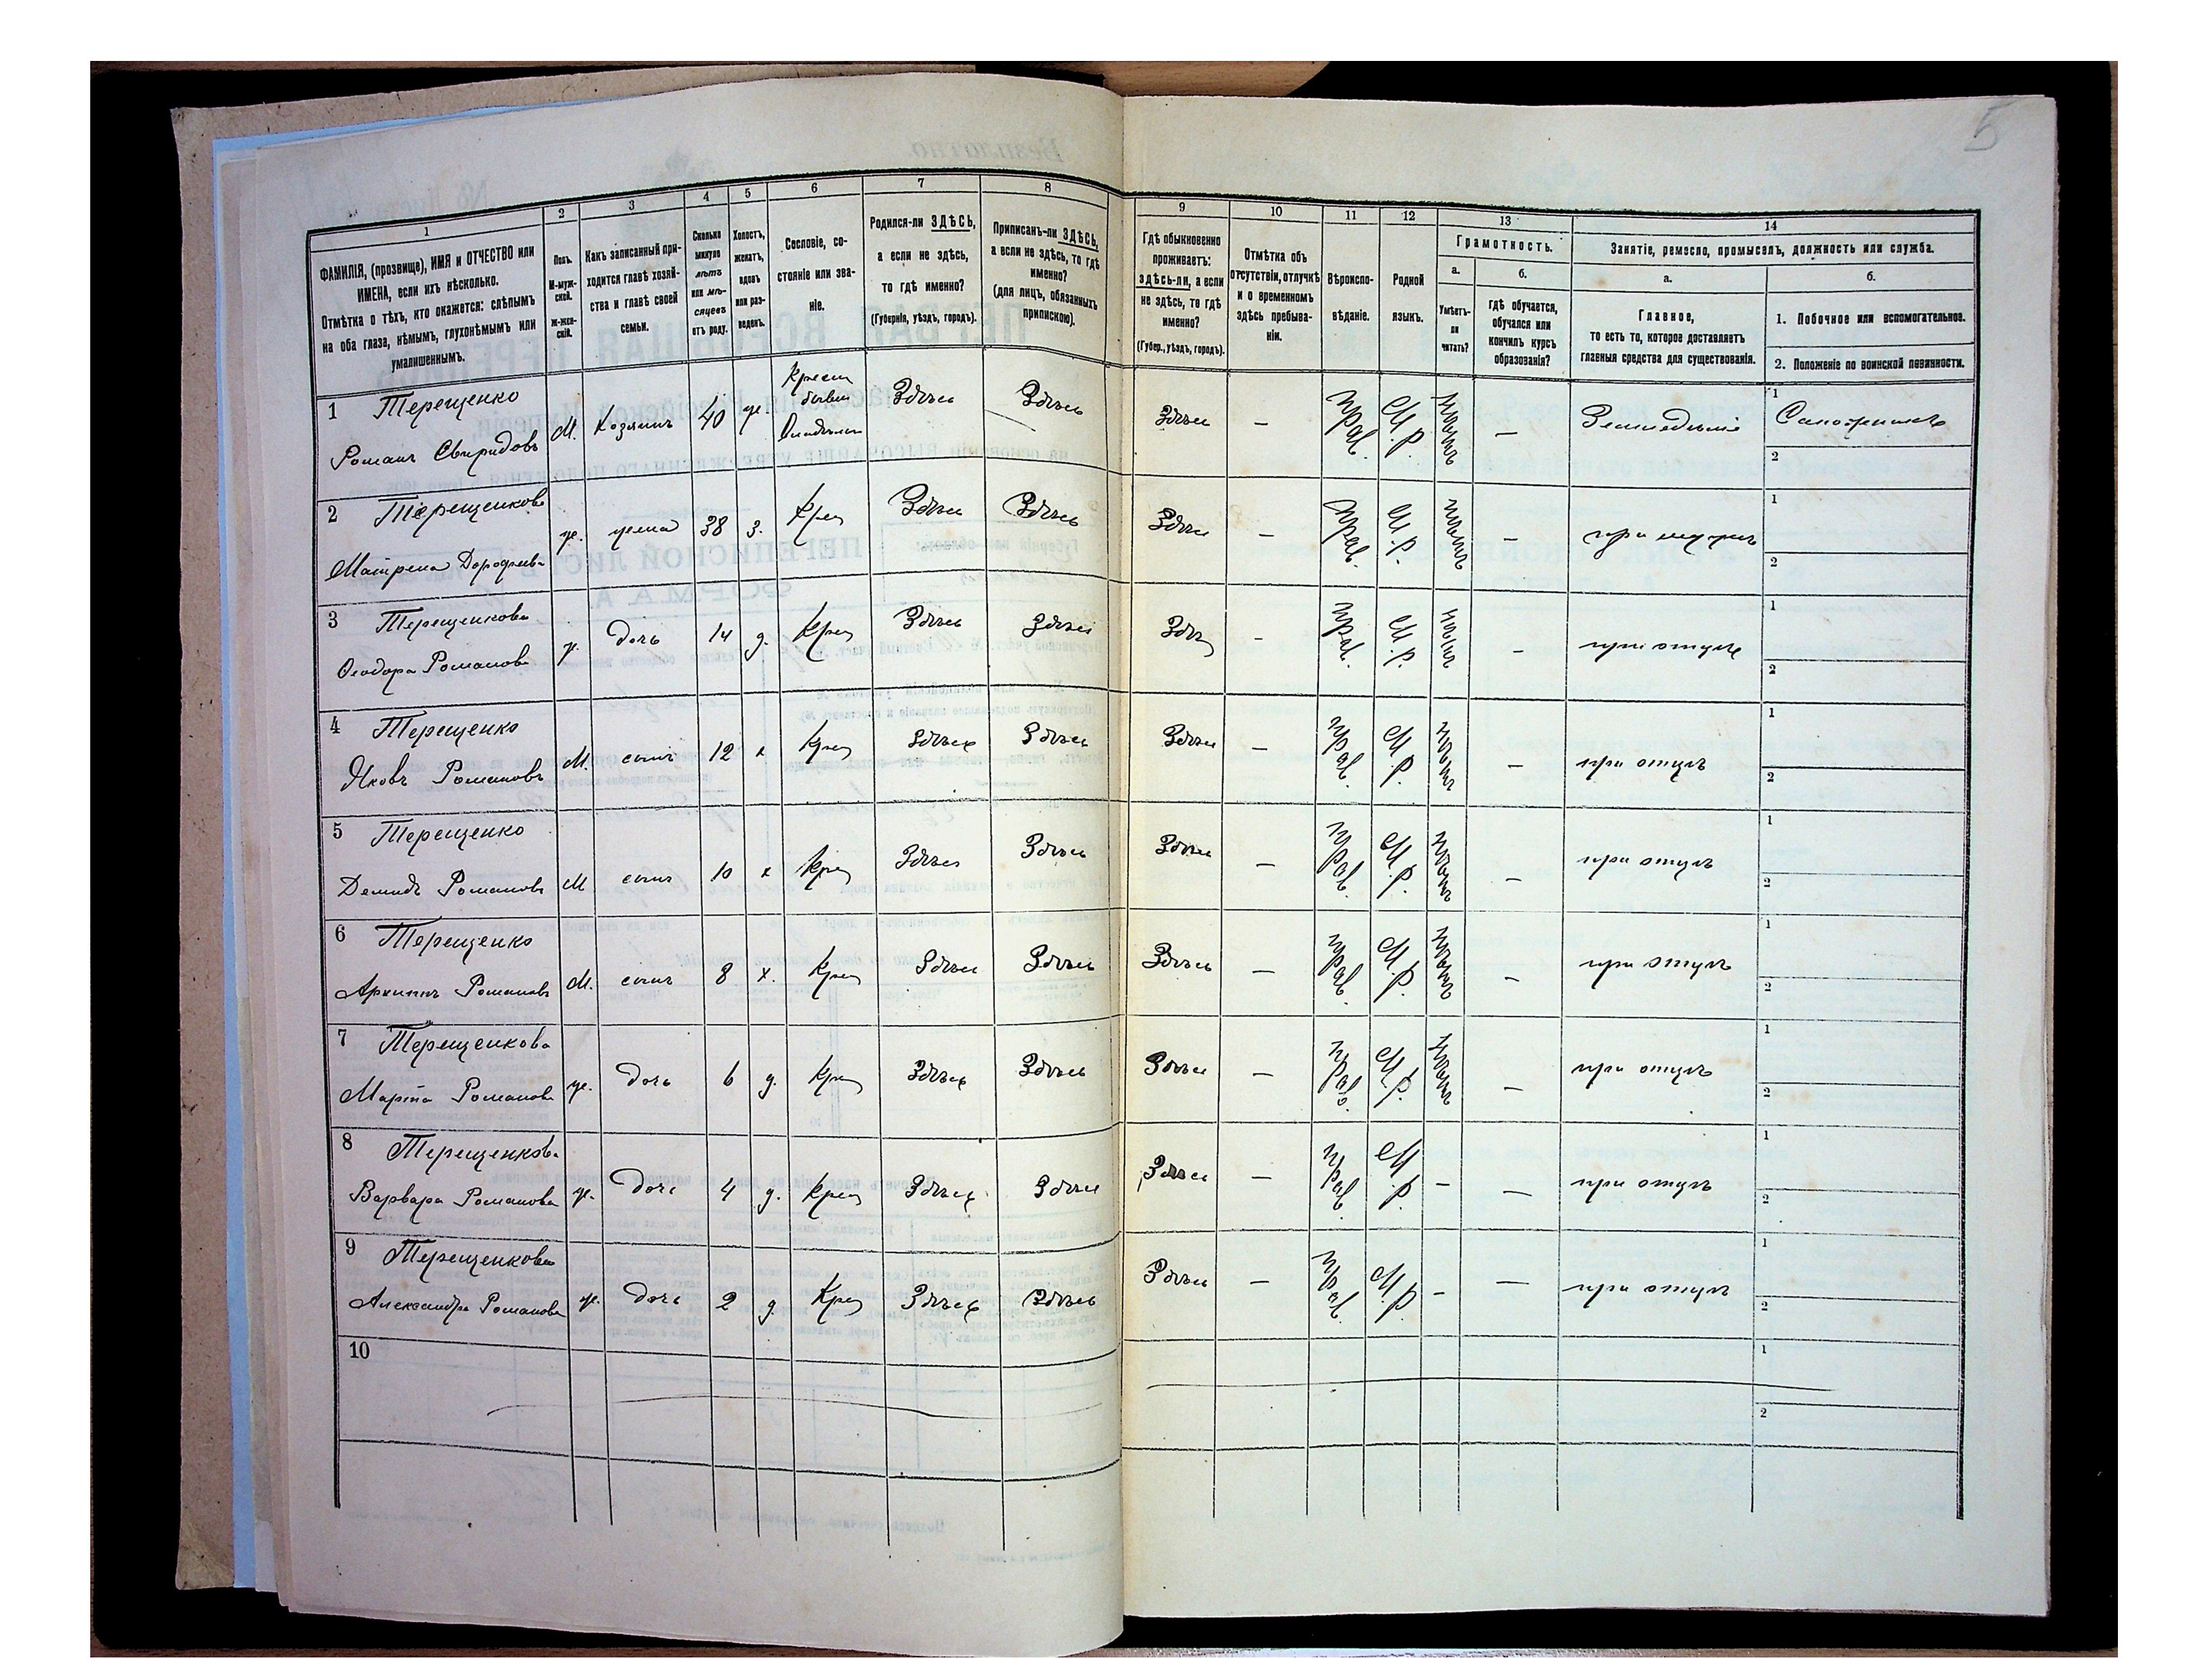 5
1
2
3
4
5
6
7
8
9
10
11
12
13
14
ФАМИЛІЯ, (прозвище), ИМЯ и ОТЧЕСТВО или
ИМЕНА, если ихъ нѣсколько.
Отмѣтка о тѣхъ, кто окажется: слѣпымъ
на оба глаза, нѣмымъ, глухонѣмымъ или
умалишеннымъ.
Полъ.
М-муж-
ской.
Ж-жен-
скій.
Какъ записанный при-
ходится главѣ хозяй-
ства и главѣ своей
семьи.
Сколько
минуло
лѣтъ
или мѣ-
сяцевъ
отъ роду.
Холостъ,
женатъ,
вдовъ
или раз-
веденъ.
Сословіе, со-
стояніе или зва-
ніе.
Родился-ли ЗДѢСЬ,
а если не здѣсь,
то гдѣ именно?
(Губернія, уѣздъ, городъ).
Приписанъ-ли ЗДѢСЬ,
а если не здѣсь, то гдѣ
именно?
(для лицъ, обязанныхъ
припискою).
Гдѣ обыкновенно
проживаетъ:
ЗДѢСЬ-ЛИ, а если
не здѣсь, то гдѣ
именно?
(Губер., уѣздъ, городъ).
Отмѣтка объ
отсутствіи, отлучкѣ
и о временномъ
здѣсь пребыва-
ніи.
Вѣроиспо-
вѣданіе.
Родной
языкъ.
Грамотность.
а.
Умѣетъ-
ли
читать?
б.
гдѣ обучается,
обучался или
кончилъ курсъ
образованія?
Занятіе, ремесло, промыселъ, должность или служба.
а.
Главное,
то есть то, которое доставляетъ
главныя средства для существованія.
б.
1. Побочное или вспомогательное.
2. Положеніе по воинской повинности.
1 Терещенко
Романъ Свиридовъ
М. Хозяинъ 40 ж.
Здѣсь Здѣсь Здѣсь — Прав. М.р. —
1
2
2 Терещенкова
Матрена Дорофеева
ж. жена 38 з. Крес Здѣсь Здѣсь Здѣсь — Прав. М.р. — при мужѣ
1
2
3 Терещенкова
Ѳеодора Романова
ж. дочь 14 д. Крес Здѣсь Здѣсь — Прав. М.р. — при отцѣ
1
2
4 Терещенко
Яковъ Романовъ
М. сынъ 12 х Крес Здѣсь Здѣсь Здѣсь — Прав. М.р. — при отцѣ
1
2
5 Терещенко
Демидъ Романовъ
М сынъ 10 х Крес Здѣсь Здѣсь Здѣсь — Прав. М.р. — при отцѣ
1
2
6 Терещенко
Архипъ Романовъ
М. сынъ 8 х. Крес Здѣсь Здѣсь Здѣсь — Прав. М.р. — при отцѣ
1
2
7 Терещенкова
Марѳа Романова
ж. дочь 6 д. Крес Здѣсь Здѣсь Здѣсь — Прав. М.р. — при отцѣ
1
2
8 Терещенкова
Варвара Романова
ж. дочь 4 д. Крес Здѣсь Здѣсь Здѣсь — Прав. М.р. — — при отцѣ
1
2
9 Терещенкова
Александра Романова
ж. дочь 2 д Крес Здѣсь Здѣсь Здѣсь — Прав. М.р. — — при отцѣ
1
2
10
1
2